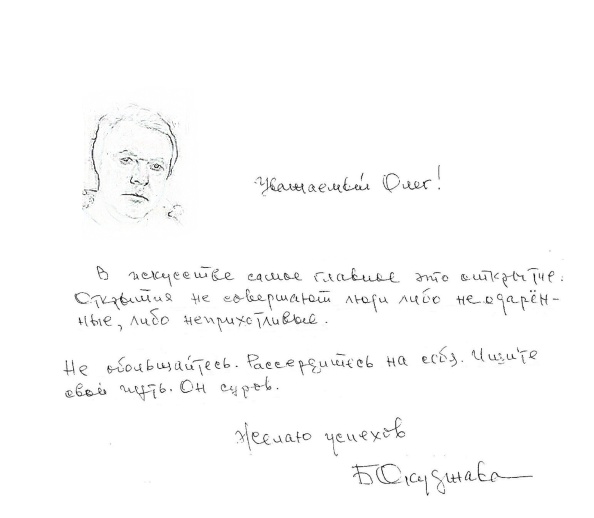 Уважаемый Олег!
В искусстве самое главное это открытие.
Открытия не совершают люди либо неодарён-
ные, либо неприхотливые.
Не обольщайтесь. Рассердитесь на себя. Ищите
свой путь. Он суров.
Желаю успехов
Б Окуджава